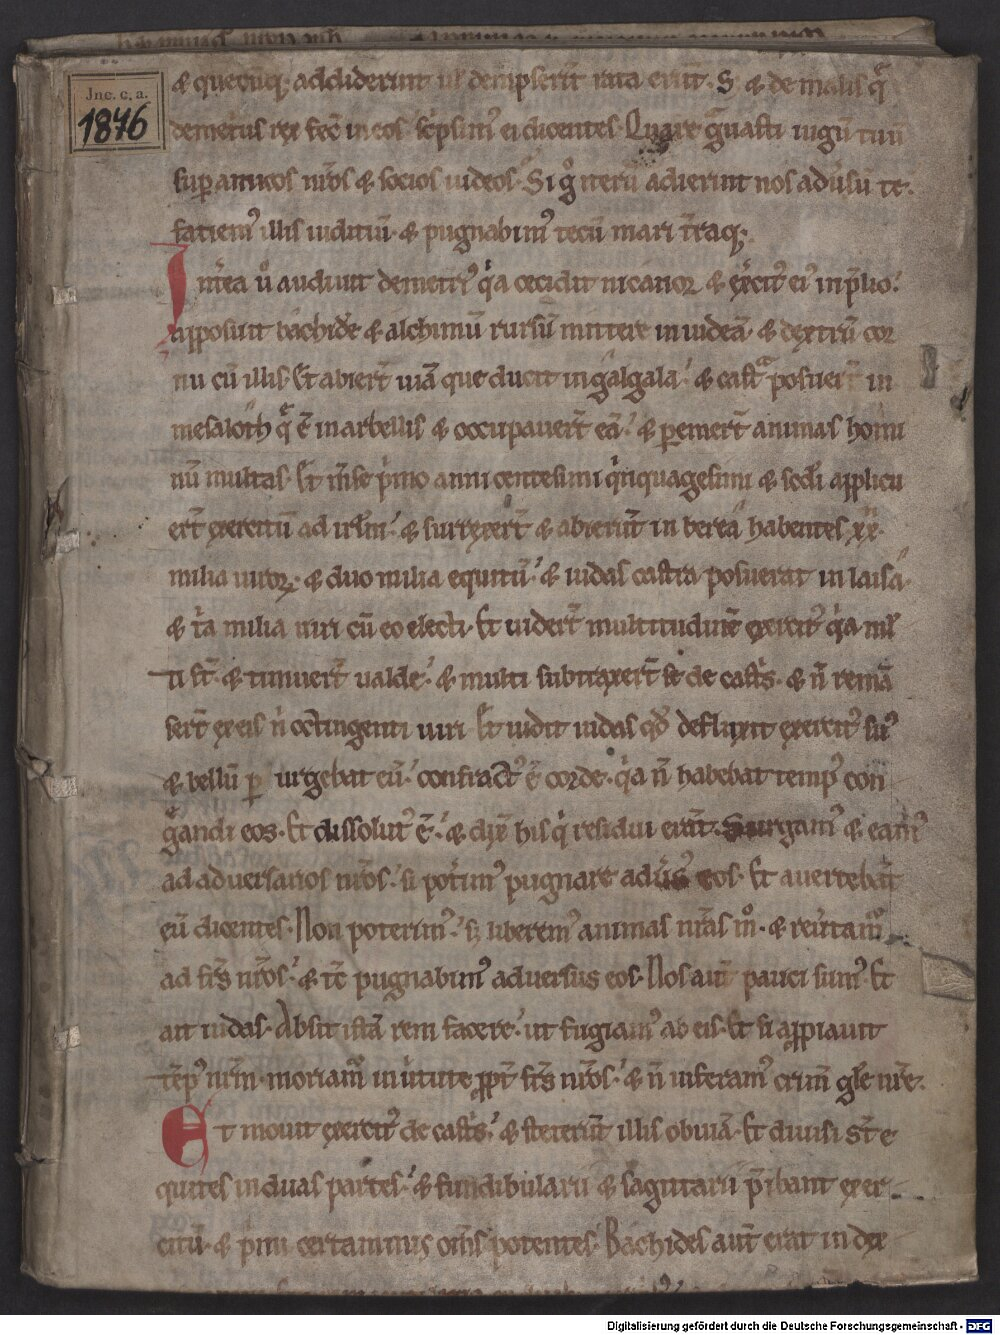 Jnc. c. a.
1876
& quecūq; addiderint ul̄ dempserīt rata erūt. S; & de malis q̄
demetrius rex fec̄ in eos sc̄psim᷒ ei dicentes. Quare g̃uasti iugū tuū
sup amicos nr̄os & socios iudeos. Si g̊ iterū adierint nos adūsū te.
faciem᷒ illis iuditiū. & pugnabim᷒ tecū mari t̄raq;.
Int̄ea ů audiuit demetri᷒ q̇a cecidit nicanor & ex̄cit᷒ ei᷒ in p̄lio.
apposuit bachidē & alchimū rursū mittere in iudeā. & dextrū cor
nu cū illis. Et abiert̄ uiā que ducit in galgala. & castra posuert̄ in
mesaloth q̄ ē in arbellis & occupauert̄ eā. & pemert̄ animas homi
nū multas. Et m̄se ṗmo anni centesimi q̇nquagesimi & scd̄i applicu
ert̄ exercitū ad irl̄m. & surrexert̄ & abierūt in berea habentes xx.
milia uiroꝝ. & duo milia equitū. & iudas castra posuerat in laisa.
& t̊a milia uiri cū eo electi. Et uidert̄ multitudinē exercit᷒ q̇a mĺ
ti st̄. & timuert̄ ualde. & multi subtraxert̄ se de cast̊s. & ñ remā
sert̄ ex eis ñ octingenti uiri. Et uidit iudas qd̄ defluxit exercit᷒ su᷒
& bellū p urgebat eū. confract᷒ ē corde. q̇a ñ habebat temp᷒ con
g̃gandi eos. Et dissolut᷒ ē. & dix̄ his q̇ residui erāt. Surgam᷒ & eam᷒
ad aduersarios nr̄os. si potim᷒ pugnare adūs᷒ eos. Et auertebāt
eū dicentes. Non poterim᷒. s; liberem᷒ animas nr̄as m̊. & reūtam᷒
ad fr̄s nr̄os. & tc̄ pugnabim᷒ aduersus eos. Nos aut̄ pauci sum᷒. Et
ait iudas. Absit istā rem facere. ut fugiam᷒ ab eis. Et si appiauit
tēp᷒ nr̄m. moriam᷒ in ūtute ppt̄ fr̄s nr̄os. & ñ inferam᷒ crimē gl̄e nr̄e.
Et mouit exercit᷒ de cast̊s. & steterūt illis obuiā. Et diuisi st̄ e
quites in duas partes. & fundibularii & sagittarii p̄ibant exer
citū. & pmi certaminis om̄s potentes. Bachides aut̄ erat in dex
Digitalisierung gefördert durch die Deutsche Forschungsgemeinschaft - DFG